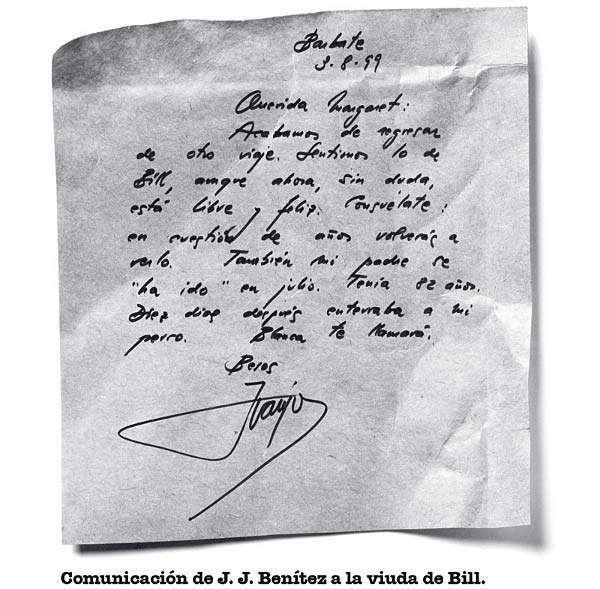 Barbate
3-8-99
Querida Margaret:
Acabamos de regresar
de otro viaje. Sentimos lo de
Bill, aunque ahora, sin duda,
está libre y feliz. Consuélate:
en cuestión de años volverás a
verlo. También mi padre se
"ha ido" en julio. Tenía 82 años.
Diez días después enterraba a mi
perro. Blanca te llamará.
Besos
Juanjo
Comunicación de J. J. Benítez a la viuda de Bill.